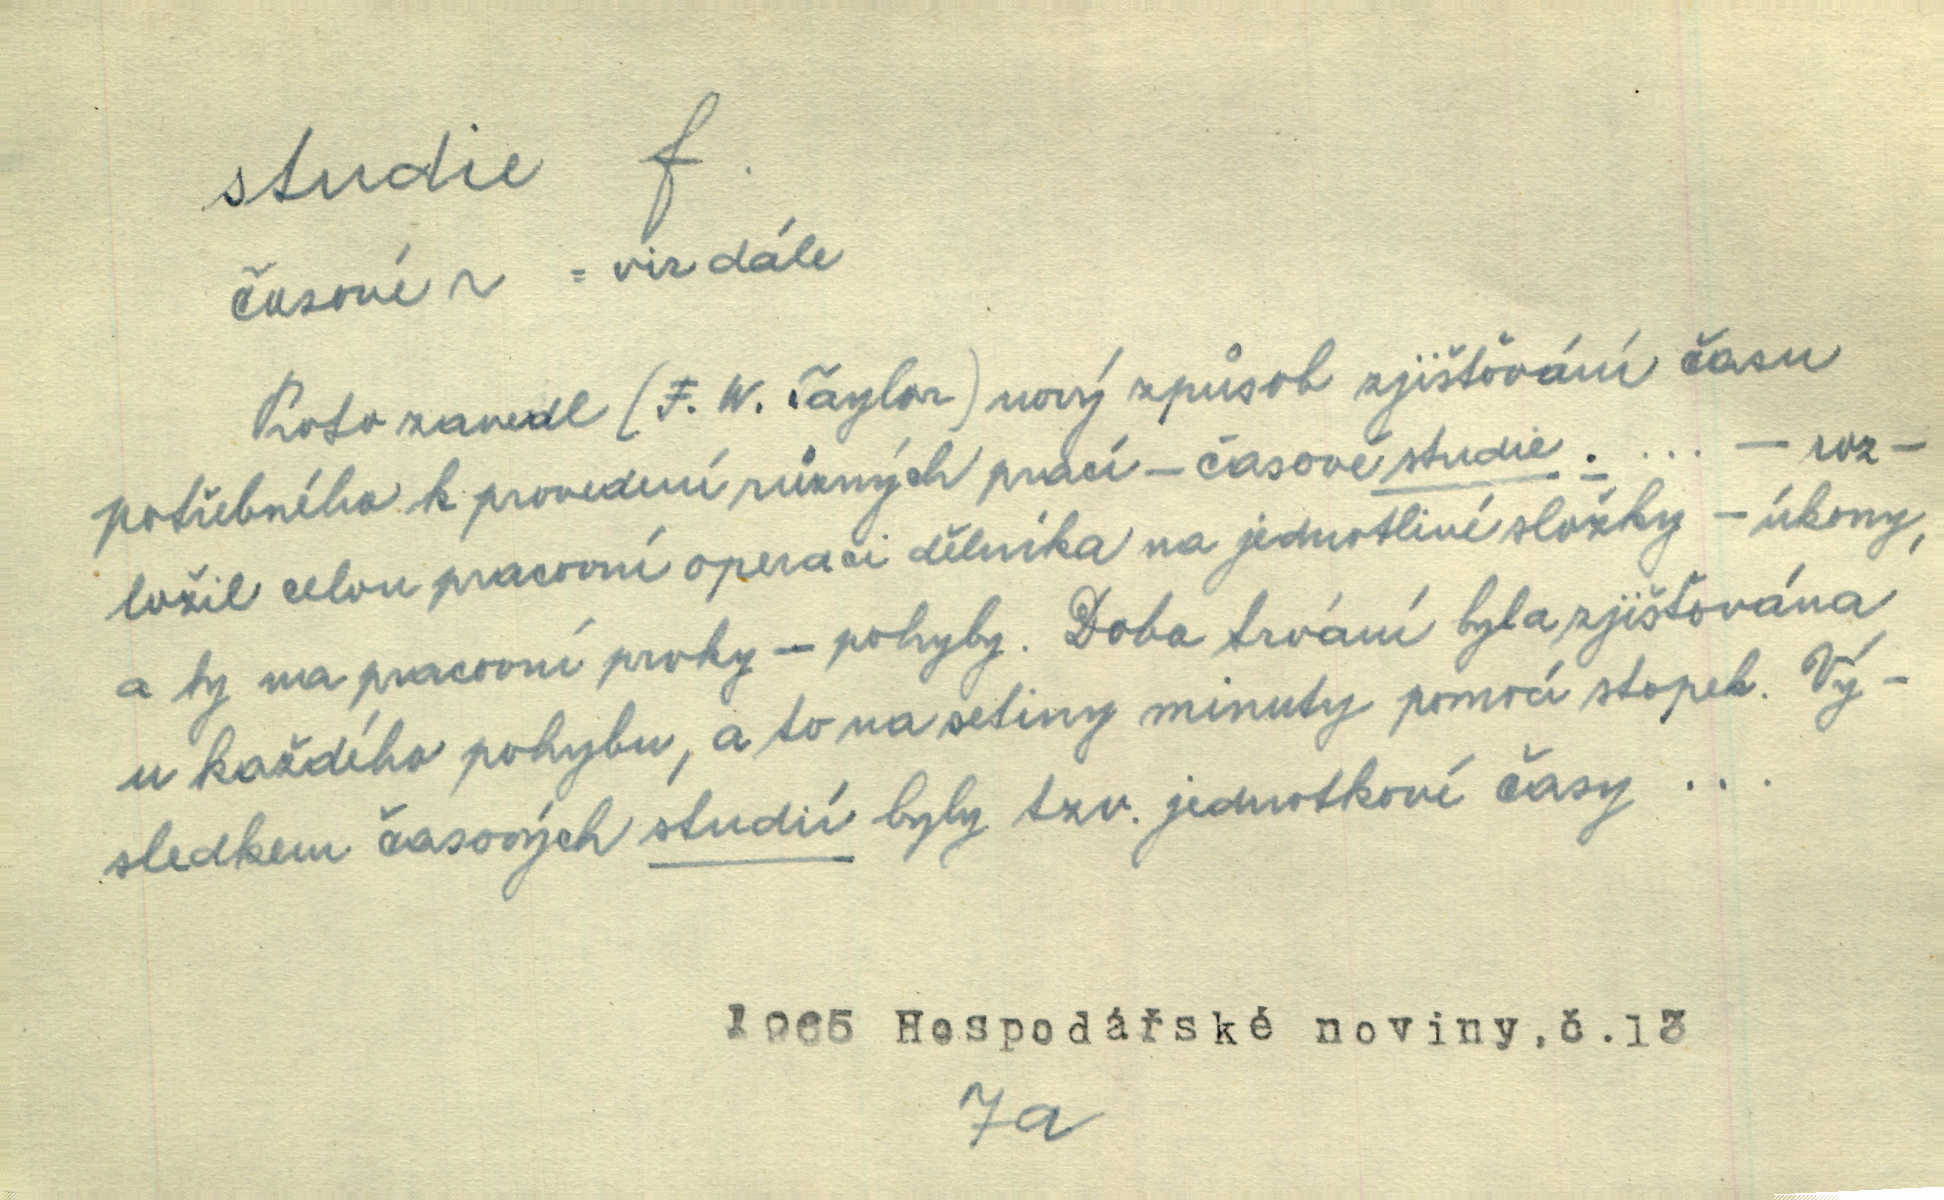 studie f.
časové ~ = viz dále
Proto zavedl (F. W. Taylor) nový způsob zjišťování času
potřebného k provedení různých prací – časové studie. ... – roz-
ložil celou pracovní operaci dělníka na jednotlivé složky – úkony,
a ty na pracovní prvky – pohyby. Doba trvání byla zjišťována
u každého pohybu, a to na setiny minuty pomocí stopek. Vý-
sledkem časových studií byly tzv. jednotkové časy ...
1965 Hospodářské noviny, č.13
7a